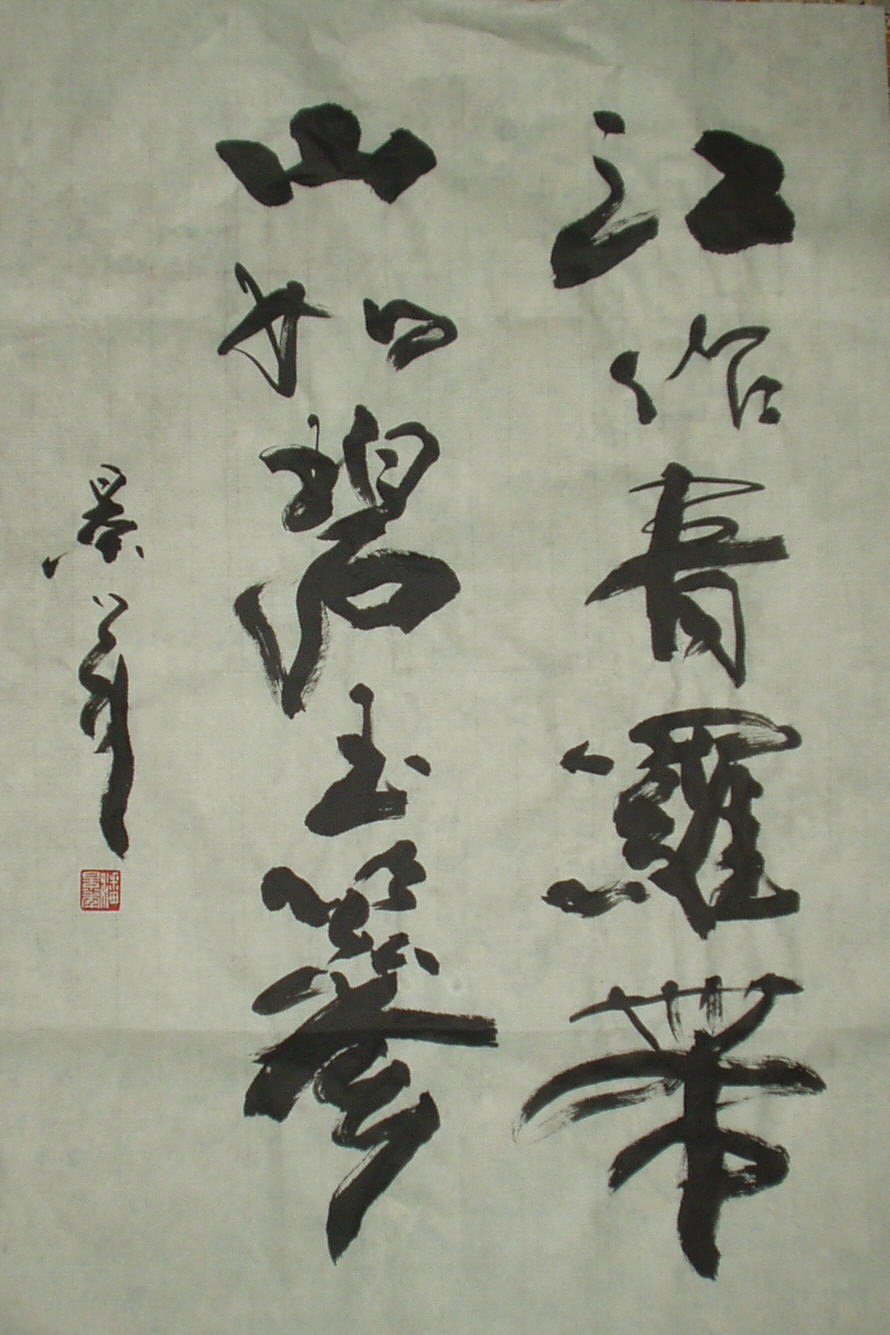 江作青羅帶
山如碧玉篸
景